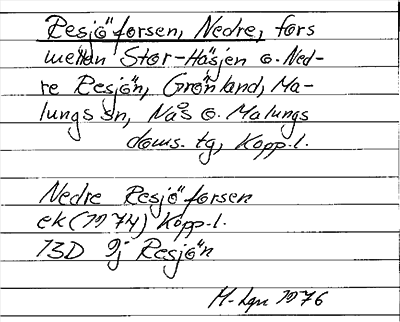 Resjöforsen, Nedre, fors
mellan Stor-Häsjen o. Ned-
re Resjön, Grönland, Ma-
lungs sn, Nås o. Malungs
doms. tg, Kopp. l.
Nedre Resjöforsen
ek (1974) Kopp. l.
13D 9j Resjön
M-Lgn 1976